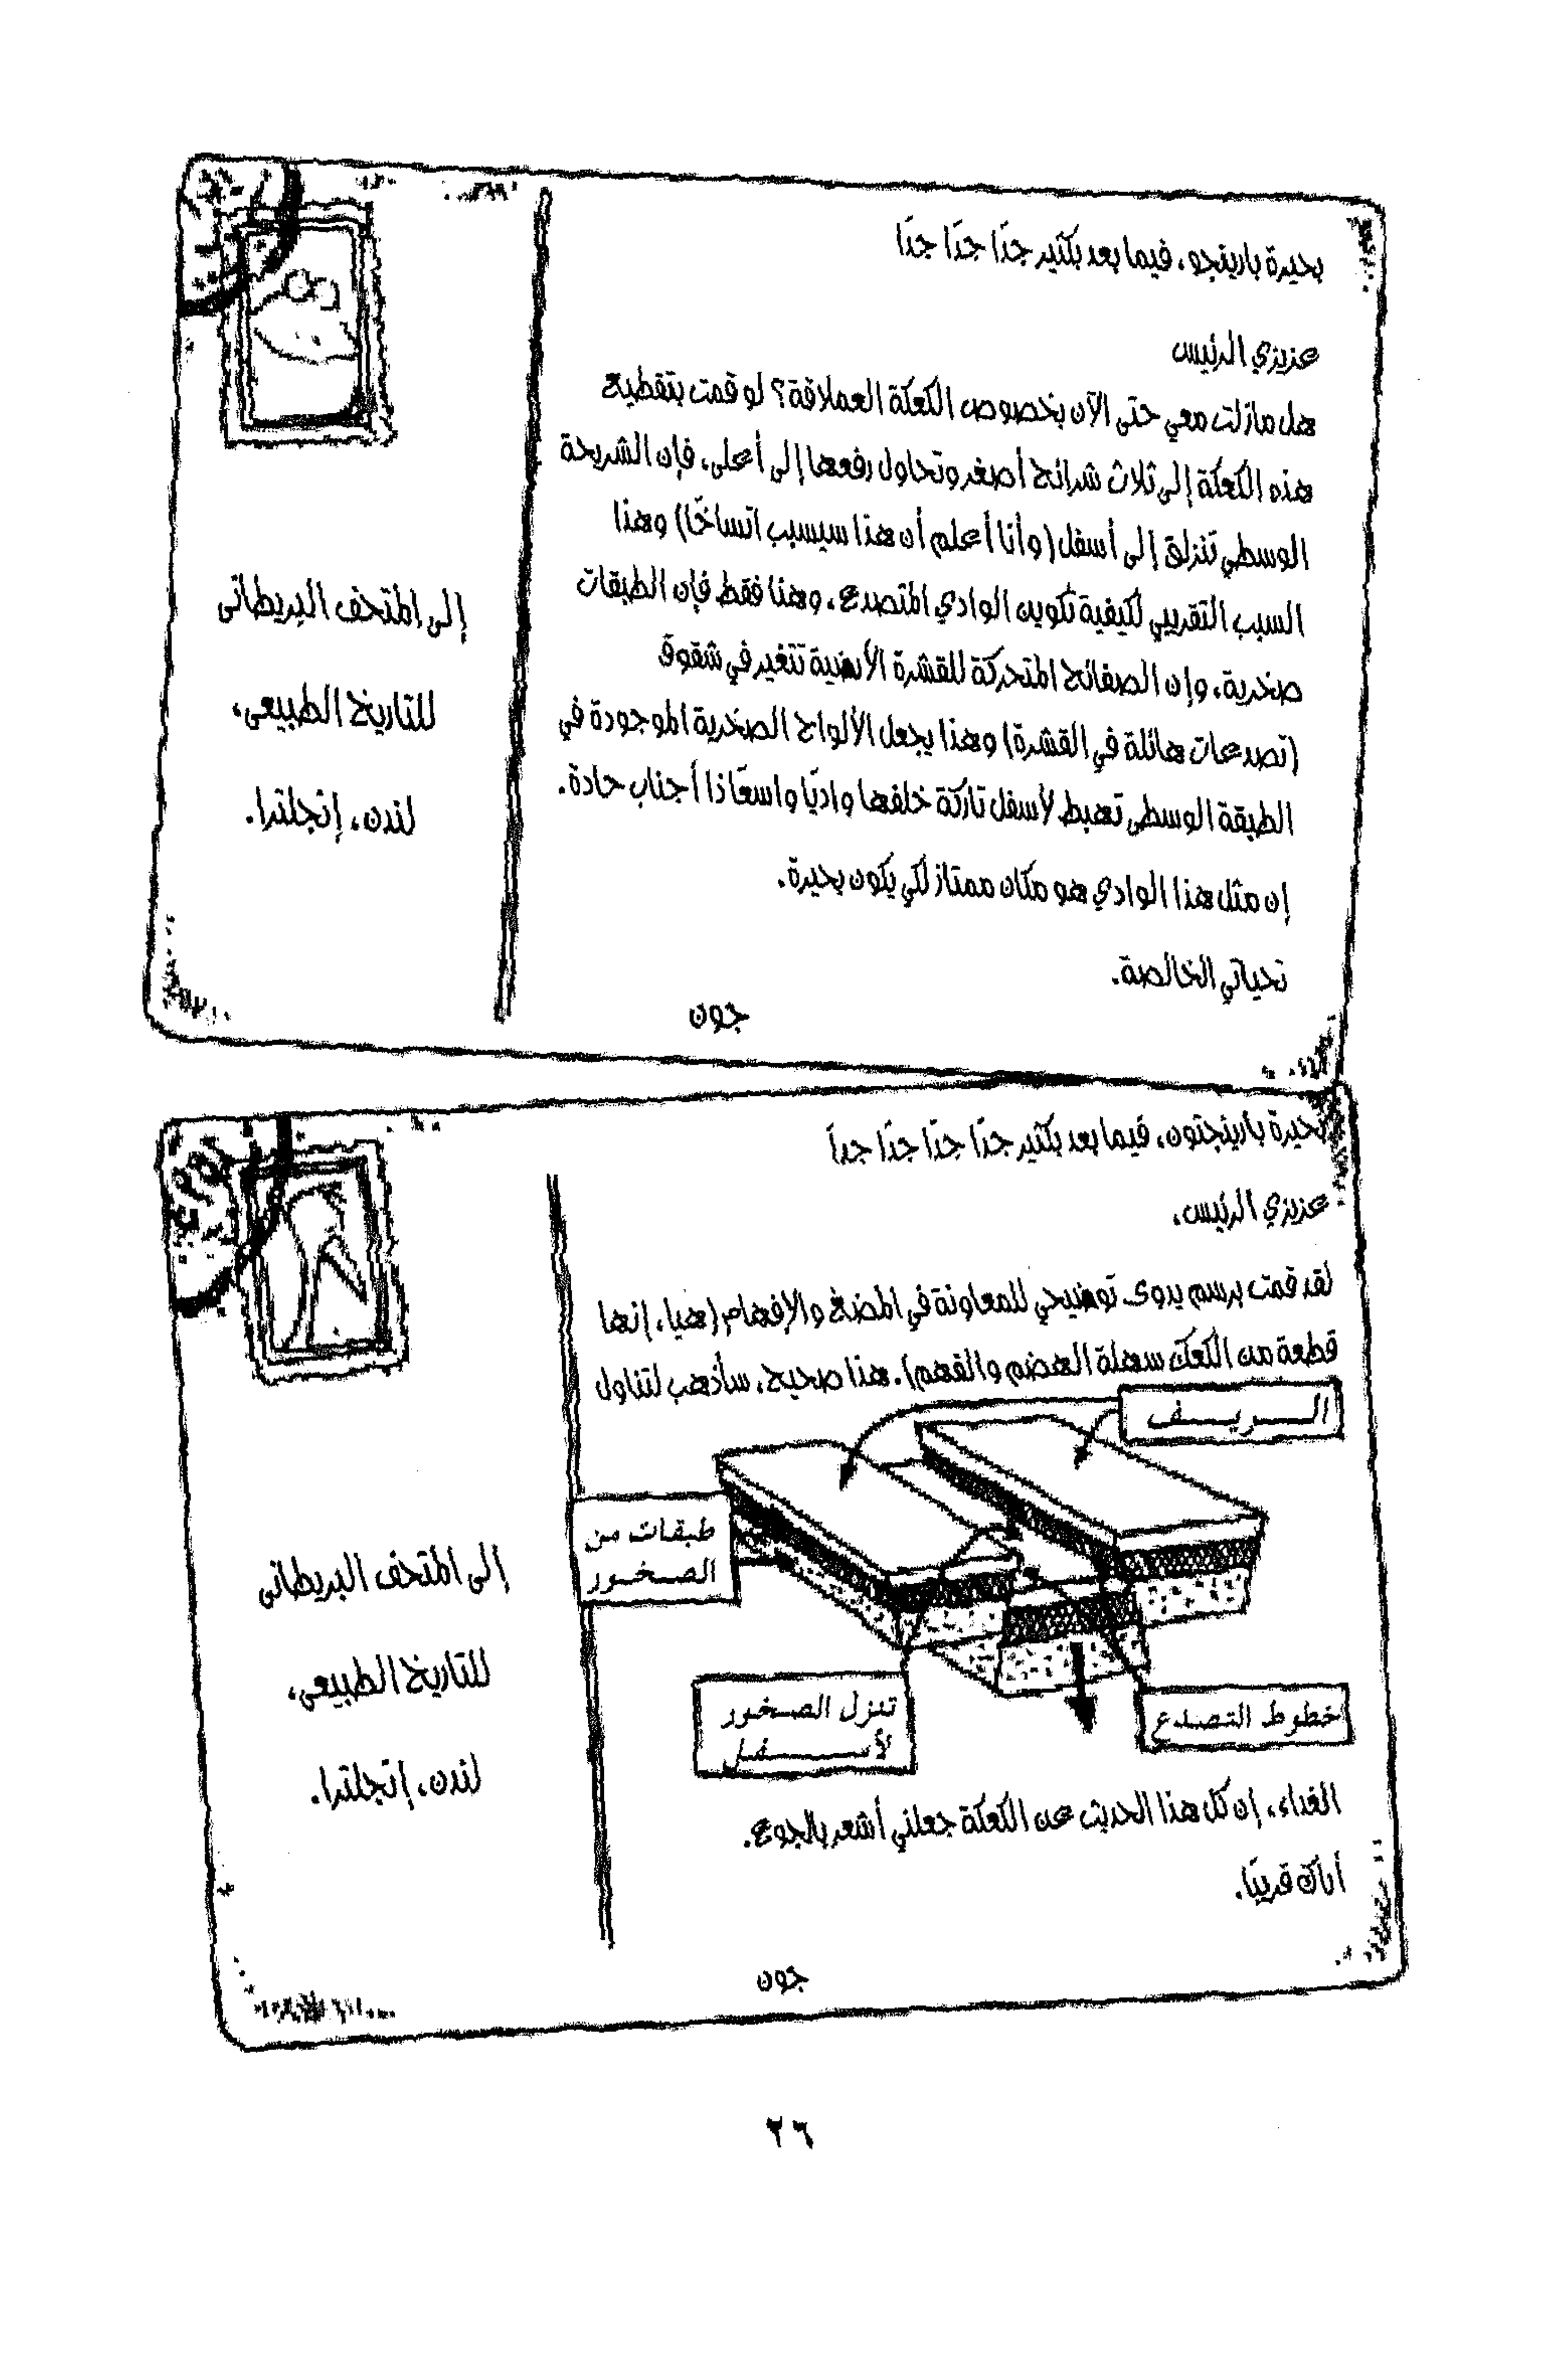 بحيرة بارينجو، فيما بعد بكثير جدًا جدًا جدًا
عزيزي الرئيس
هل مازلت معي حتى الآن بخصوص الكعكة العملاقة؟ لو قمت بتقطيع
هذه الكعكة إلى ثلاث شرائح أصغر وتحاول رفعها إلى أعلى، فإن الشريحة
الوسطي تنزلق إلى أسفل (وأنا أعلم أن هذا سيسبب اتساخًا) وهذا
السبب التقريبي لكيفية تكوين الوادي المتصدع، وهنا فقط فإن الطبقات
صخرية، وإن الصفائح المتحركة للقشرة الأرضية تتغير في شقوق
(تصدعات هائلة في القشرة) وهذا يجعل الألواح الصخرية الموجودة في
الطبقة الوسطى تهبط لأسفل تاركة خلفها واديًا واسعًا ذا أجناب حادة.
إن مثل هذا الوادي هو مكان ممتاز لكي يكون بحيرة.
تحياتي الخالصة.
جون
إلى المتحف البريطانى
للتاريخ الطبيعى،
لندن، إنجلترا.
بحيرة بارينجتون، فيما بعد بكثير جدًا جدًا جدًا جداً
عزيزي الرئيس،
لقد قمت برسم يدوى توضيحي للمعاونة في المضغ والإفهام (هيا، إنها
قطعة من الكعك سهلة الهضم والفهم). هذا صحيح، سأذهب لتناول
الريف
طبقات من
الصخور
تنزل الصخور
لأسفل
خطوط التصدع
الغداء، إن كل هذا الحديث عن الكعكة جعلني أشعر بالجوع.
أراك قريبًا.
جون
إلى المتحف البريطانى
للتاريخ الطبيعى،
لندن، إنجلترا.
٢٦